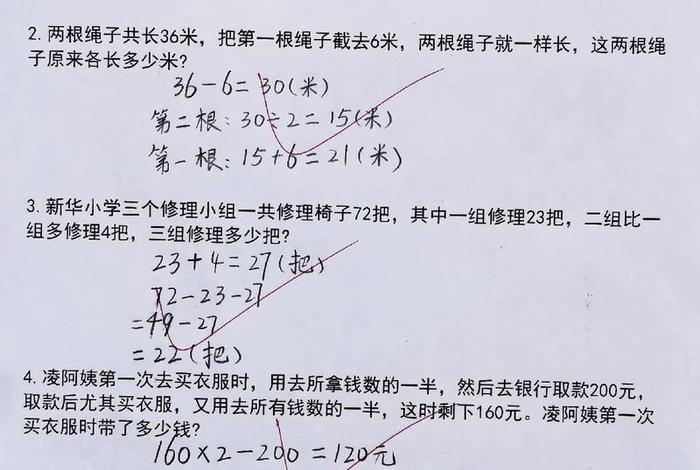 2. 两根绳子共长36米，把第一根绳子截去6米，两根绳子就一样长，这两根绳
子原来各长多少米?
36-6=30(米)
第二根: 30÷2=15(米)
第一根: 15+6=21(米)
3. 新华小学三个修理小组一共修理椅子72把，其中一组修理23把，二组比一
组多修理4把，三组修理多少把?
23+4=27(把)
72-23-27
=49-27
=22(把)
4. 凌阿姨第一次去买衣服时，用去所拿钱数的一半，然后去银行取款200元，
取款后尤其买衣服，又用去所有钱数的一半，这时剩下160元。凌阿姨第一次
买衣服时带了多少钱?
160×2-200=120元